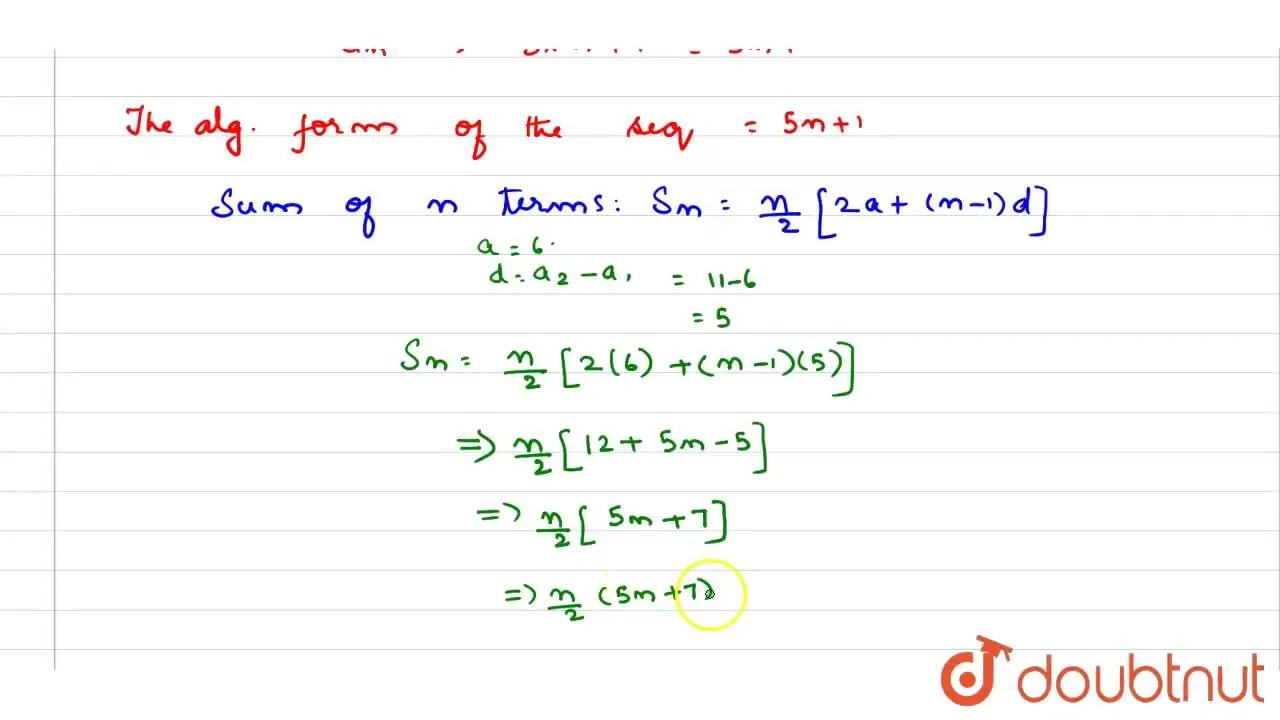 The alg. forms of the seq = 5n+1
Sum of n terms: Sn = n/2 [2a + (n-1)d]
a = 6.
d = a2 - a1 = 11-6
= 5
Sn = n/2 [2(6) + (n-1)(5)]
=> n/2 [12 + 5n - 5]
=> n/2 [5n + 7]
=> n/2 (5n+7)
doubtnut